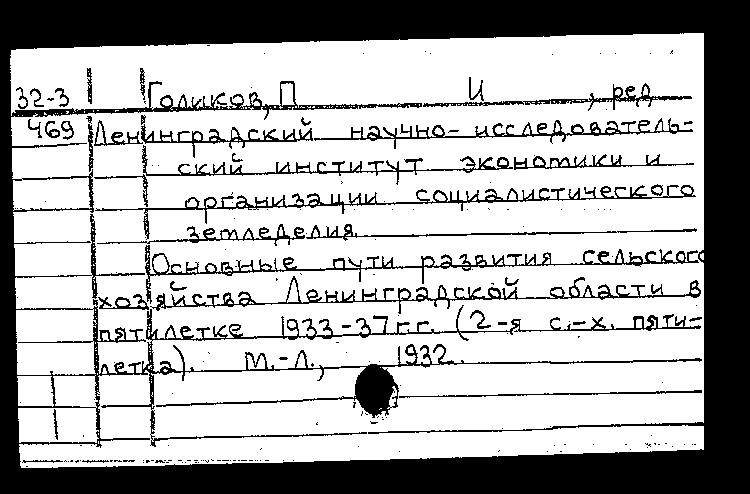 32-3 Голиков, П И , ред
469 Ленинградский научно-исследователь-
ский институт экономики и
организации социалистического
земледелия.
Основные пути развития сельского
хозяйства Ленинградской области в
пятилетке 1933-37 г.г. (2-я с.-х. пяти-
летка). М.-Л., 1932.